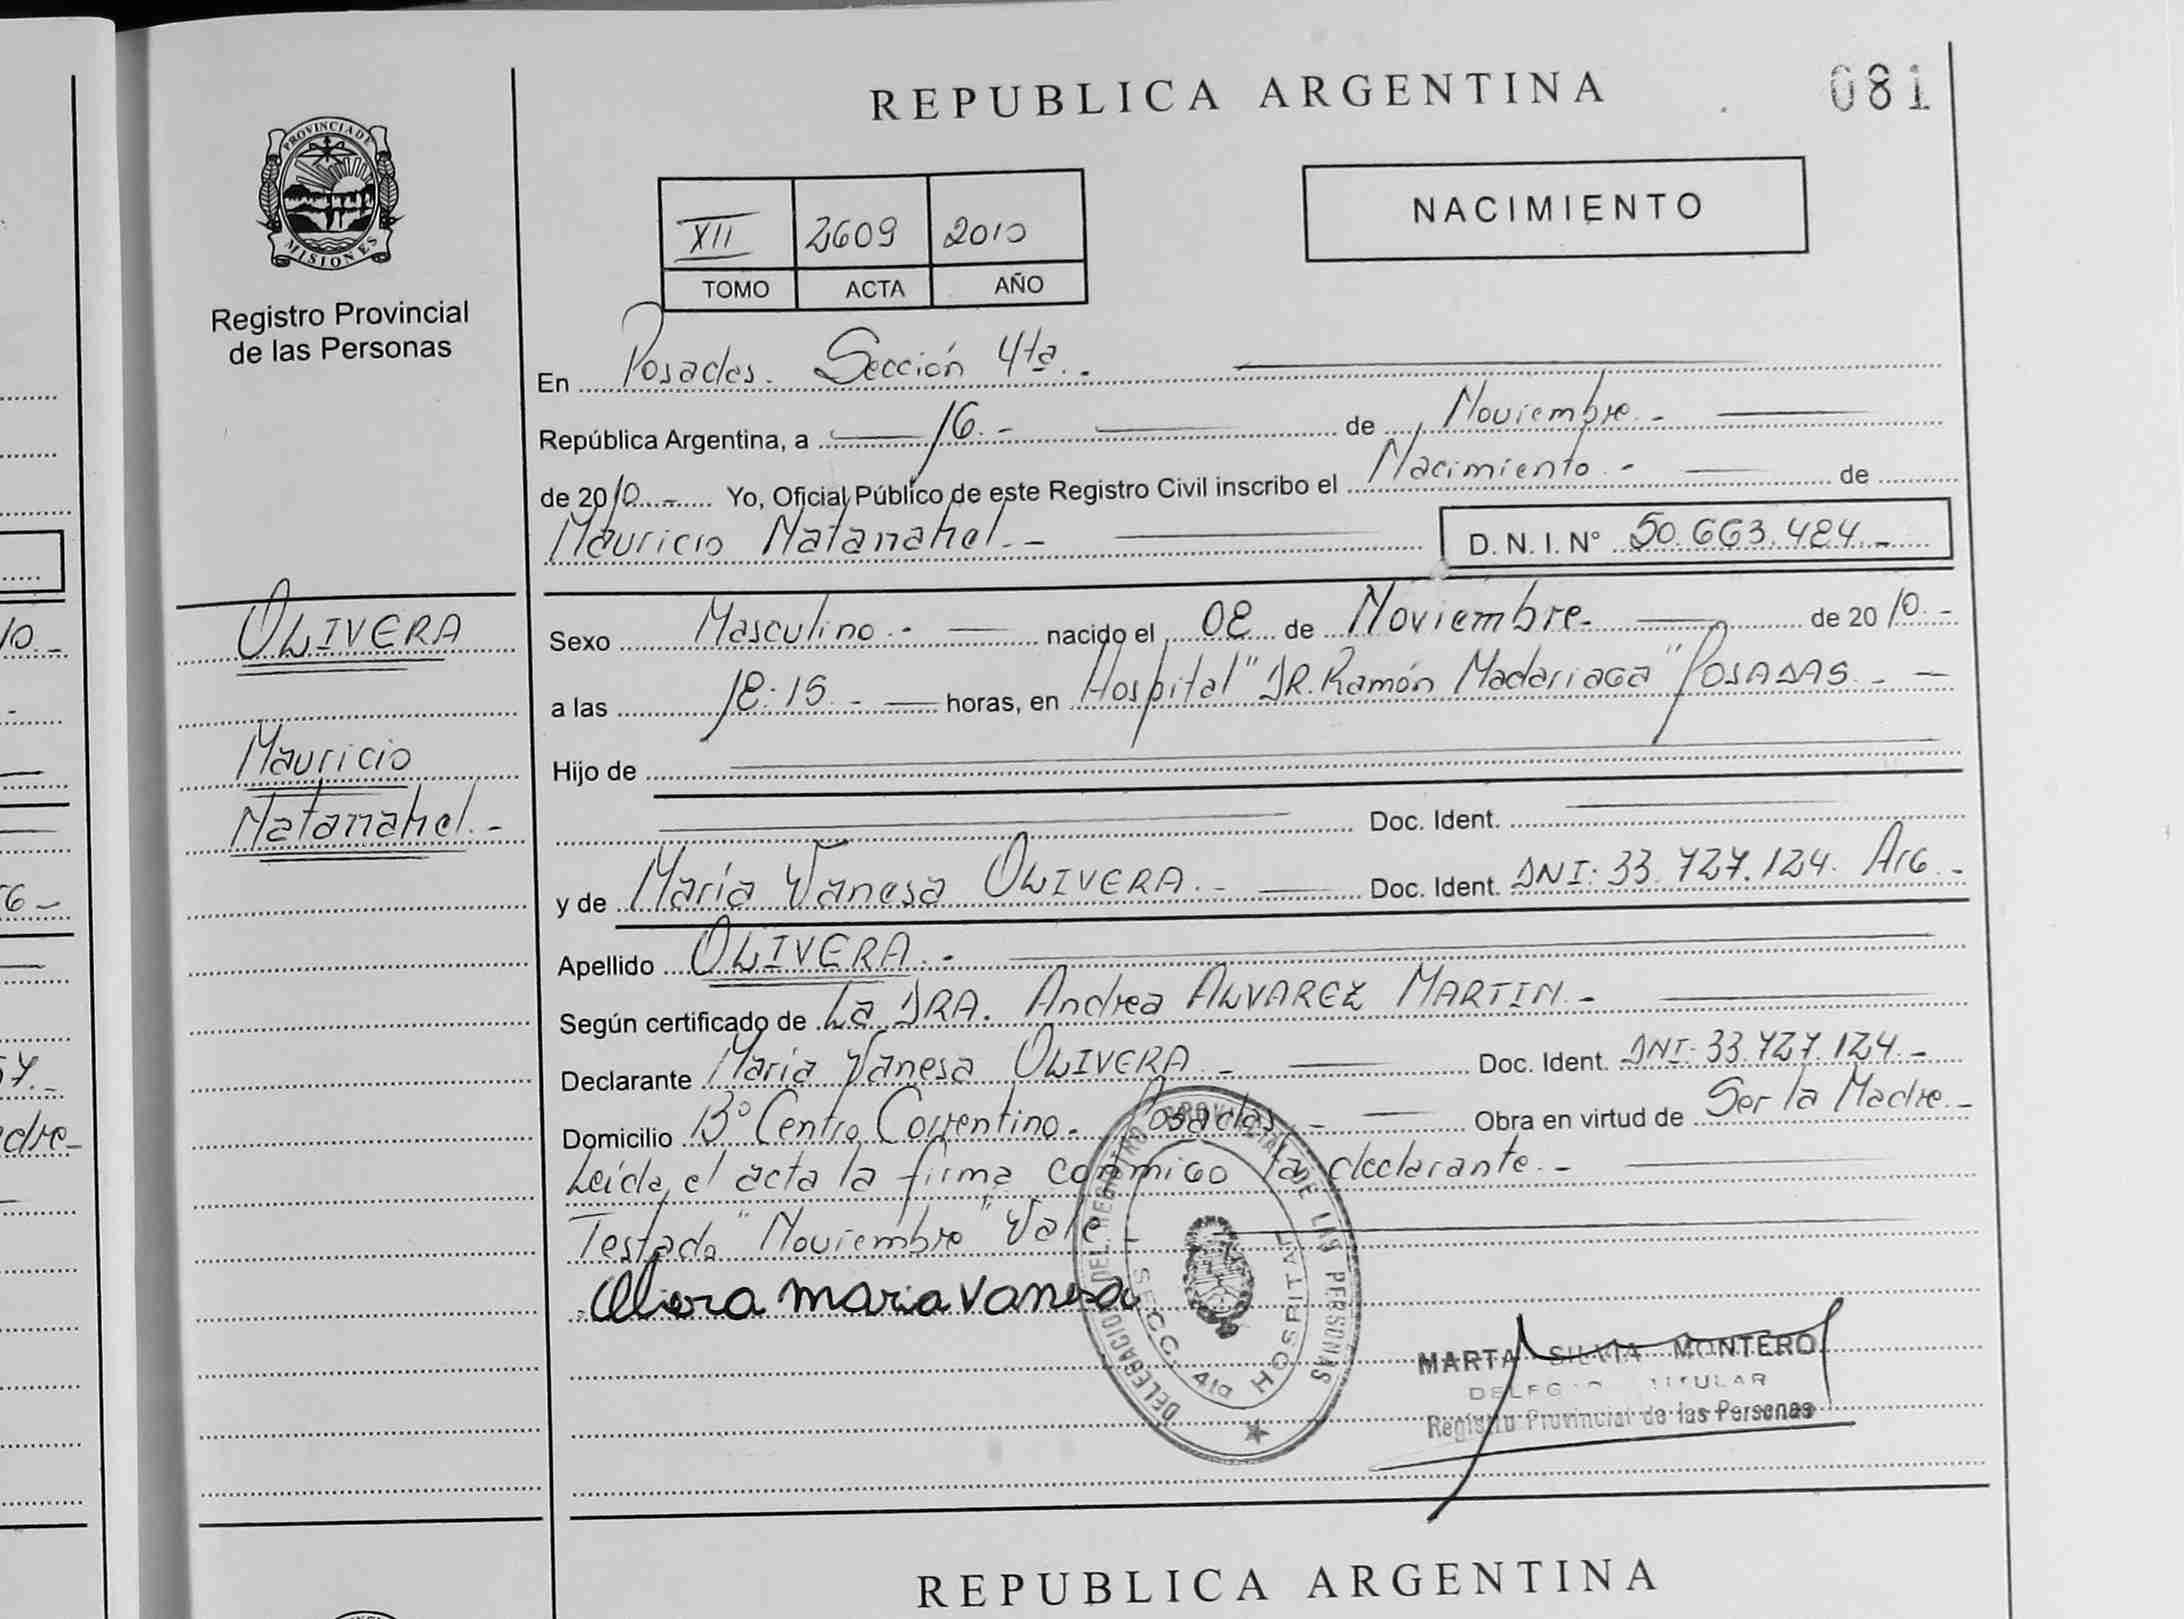 REPUBLICA ARGENTINA
081
PROVINCIA DE
MISIONES
Registro Provincial
de las Personas
XII 2609 2010
TOMO ACTA AÑO
NACIMIENTO
En Posadas. Sección 4ta.-
República Argentina, a 16.- de Noviembre.-
de 2010.- Yo, Oficial Público de este Registro Civil inscribo el Nacimiento.- de
Mauricio Natanahel.- D. N. I. Nº 50.663.484.-
OLIVERA
Mauricio
Natanahel.-
Sexo Masculino.- nacido el 08 de Noviembre.- de 2010.-
a las 18:15.- horas, en Hospital "DR. Ramón Madariaga" POSADAS.-
Hijo de
Doc. Ident.
y de María Vanesa OLIVERA.- Doc. Ident. DNI: 33.727.124. Arg.-
Apellido OLIVERA.-
Según certificado de La DRA. Andrea ALVAREZ MARTIN.-
Declarante María Vanesa OLIVERA.- Doc. Ident. DNI: 33.727.124.-
Domicilio Bº Centro Correntino. Posadas.- Obra en virtud de Ser la Madre.-
Leída el acta la firma conmigo la declarante.-
Testado "Noviembre" Vale
Olivera maria vanesa
DELEGACION DEL REGISTRO PROVINCIAL DE LAS PERSONAS
SECC. 4ta HOSPITAL
MARTA SILVIA MONTERO
TITULAR
Registro Provincial de las Personas
REPUBLICA ARGENTINA